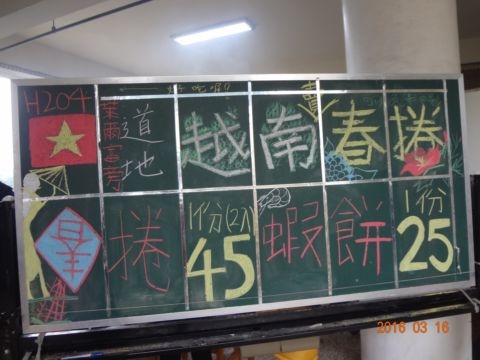 H204
道地
越南春捲
捲
1份(2入)
45
蝦餅
1份
25
2016 03 16